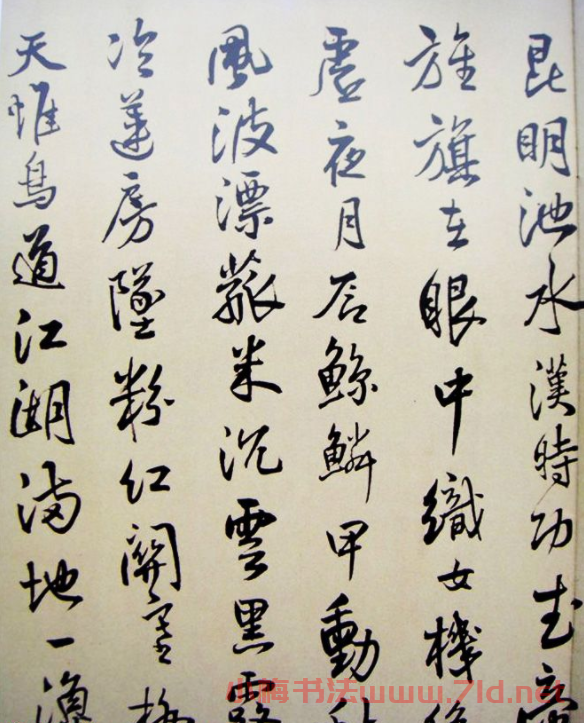 昆明池水漢時功武
旌旗在眼中織女機
虛夜月石鯨鱗甲動
風波漂菰米沉雲黑露
冷蓮房墜粉紅關塞極
天惟鳥道江湖滿地一漁
小梅书法www.7ld.net